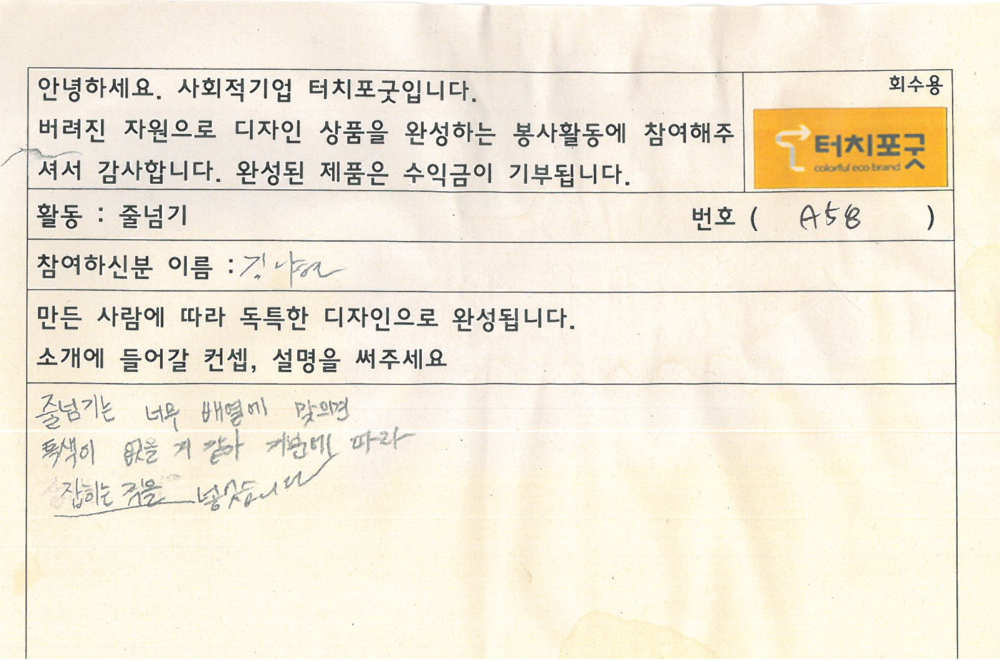 안녕하세요. 사회적기업 터치포굿입니다.
버려진 자원으로 디자인 상품을 완성하는 봉사활동에 참여해주
셔서 감사합니다. 완성된 제품은 수익금이 기부됩니다.
회수용
터치포굿
colorful eco brand
활동 : 줄넘기
번호 ( A58 )
참여하신분 이름 : 김
만든 사람에 따라 독특한 디자인으로 완성됩니다.
소개에 들어갈 컨셉, 설명을 써주세요
줄넘기는 너무 배열에 맞으면
특색이 없을 거 같아 기분에 따라
잡히는 것을 넣었습니다